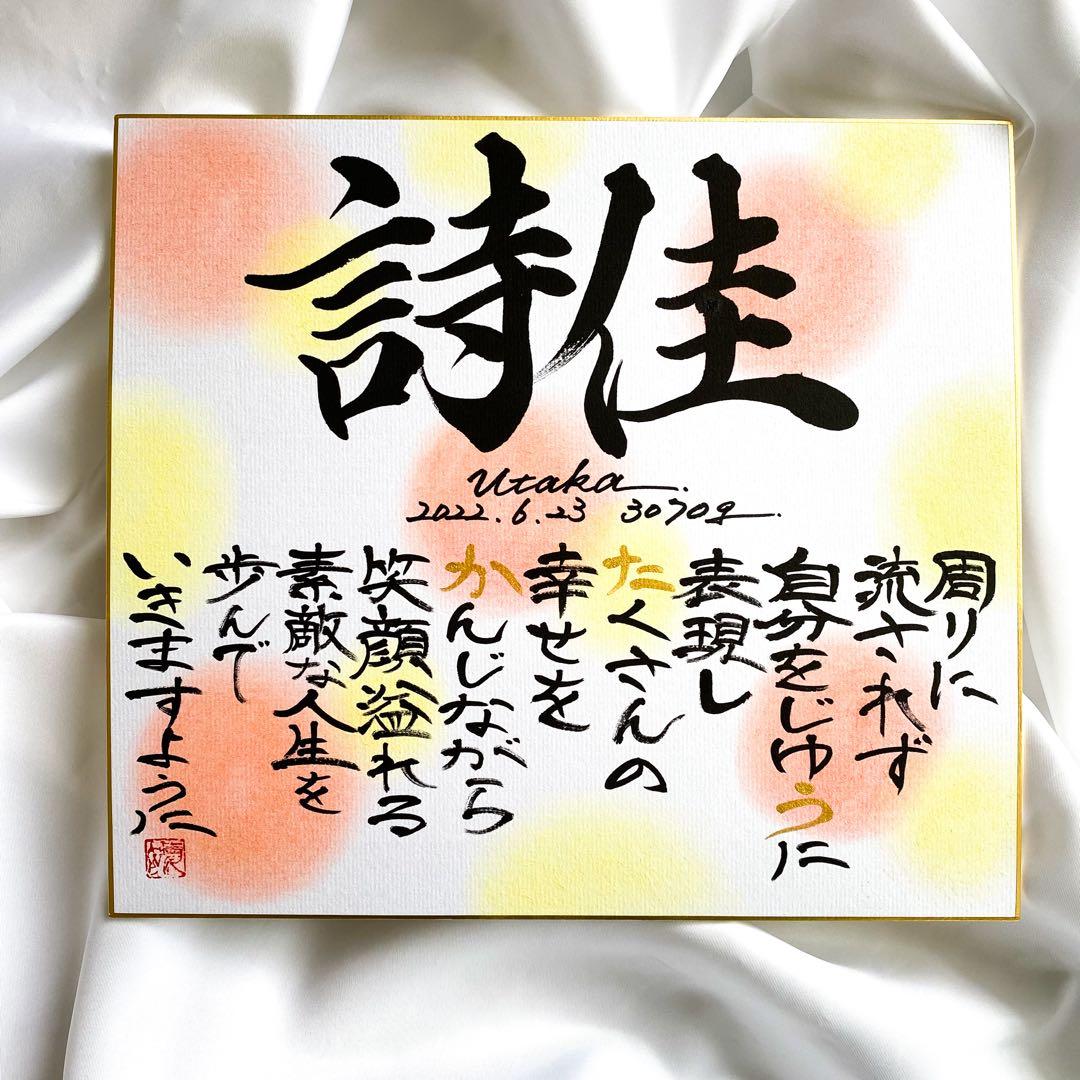 詩佳
Utaka
2022.6.23 3070g
周りに
流されず
自分をじゆうに
表現し
たくさんの
幸せを
かんじながら
笑顔溢れる
素敵な人生を
歩んで
いきますように